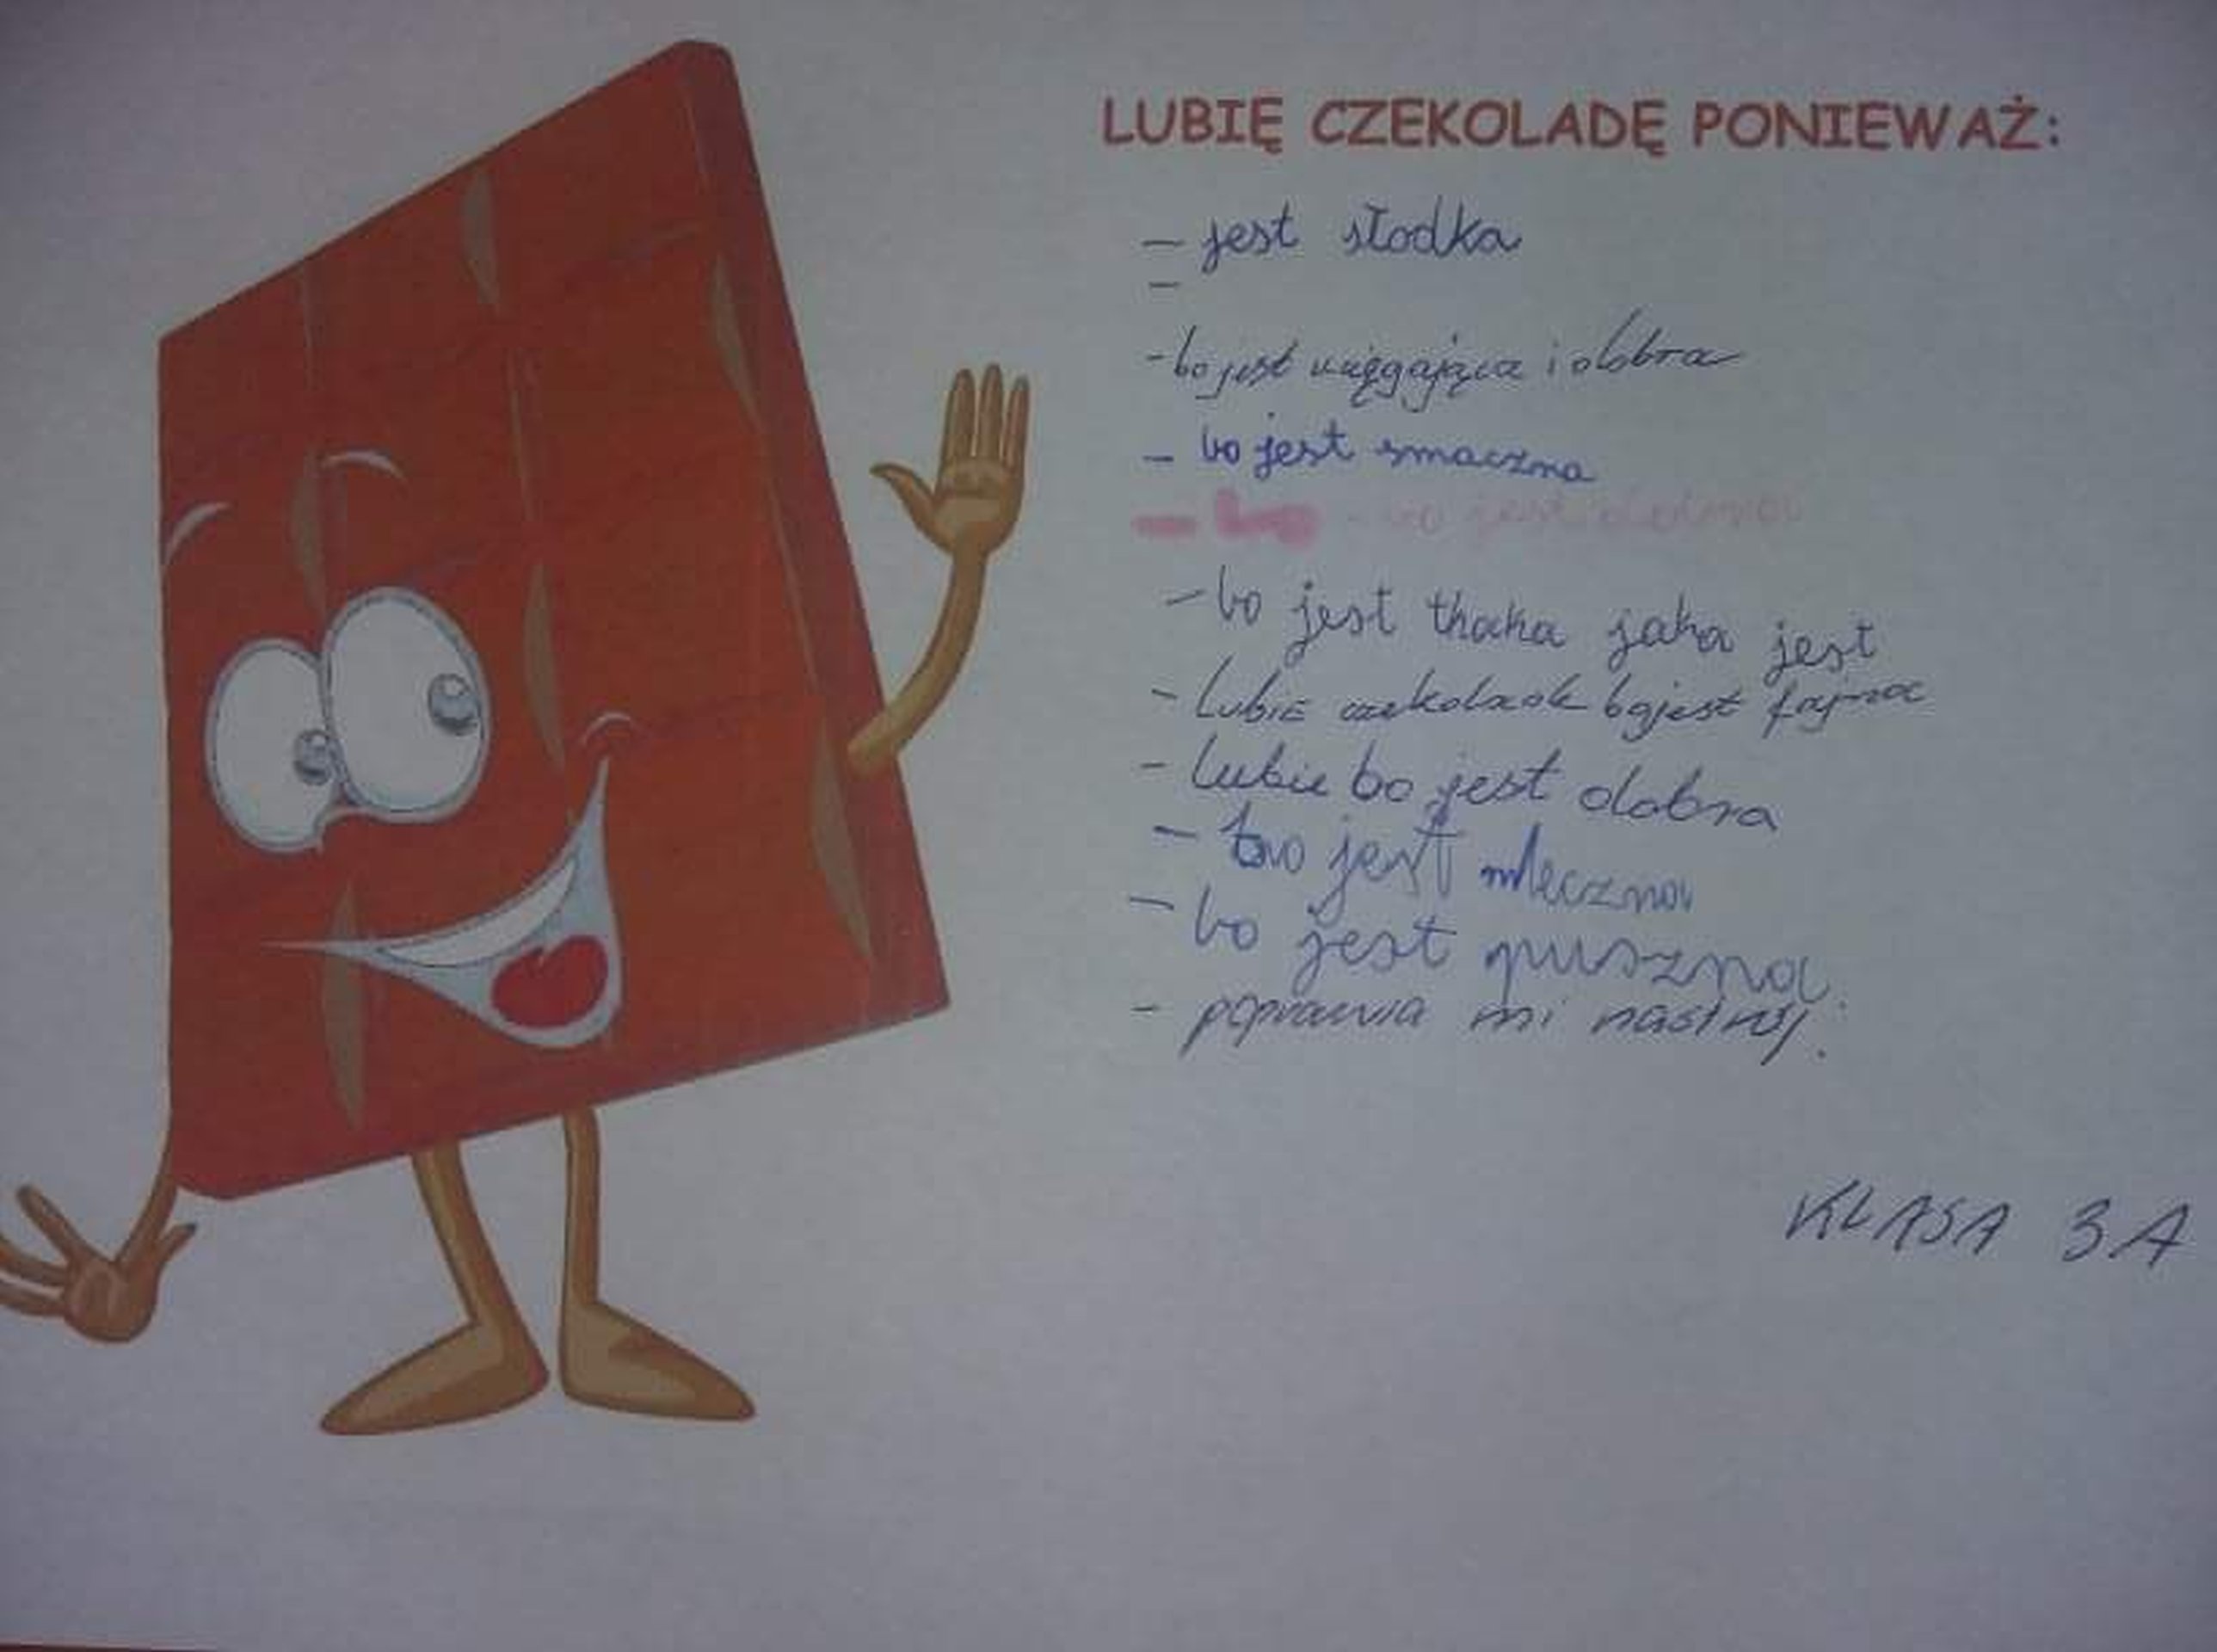 LUBIĘ CZEKOLADĘ PONIEWAŻ:
- jest słodka
-
- bo jest i dobra
- bo jest smaczna
- bo jest
- bo jest thaka jaka jest
- Lubie bojest fajna
- Lubie bo jest dobra
- bo jest mleczna
- bo jest puszna.
- poprawia mi nastrój.
KLASA 3A